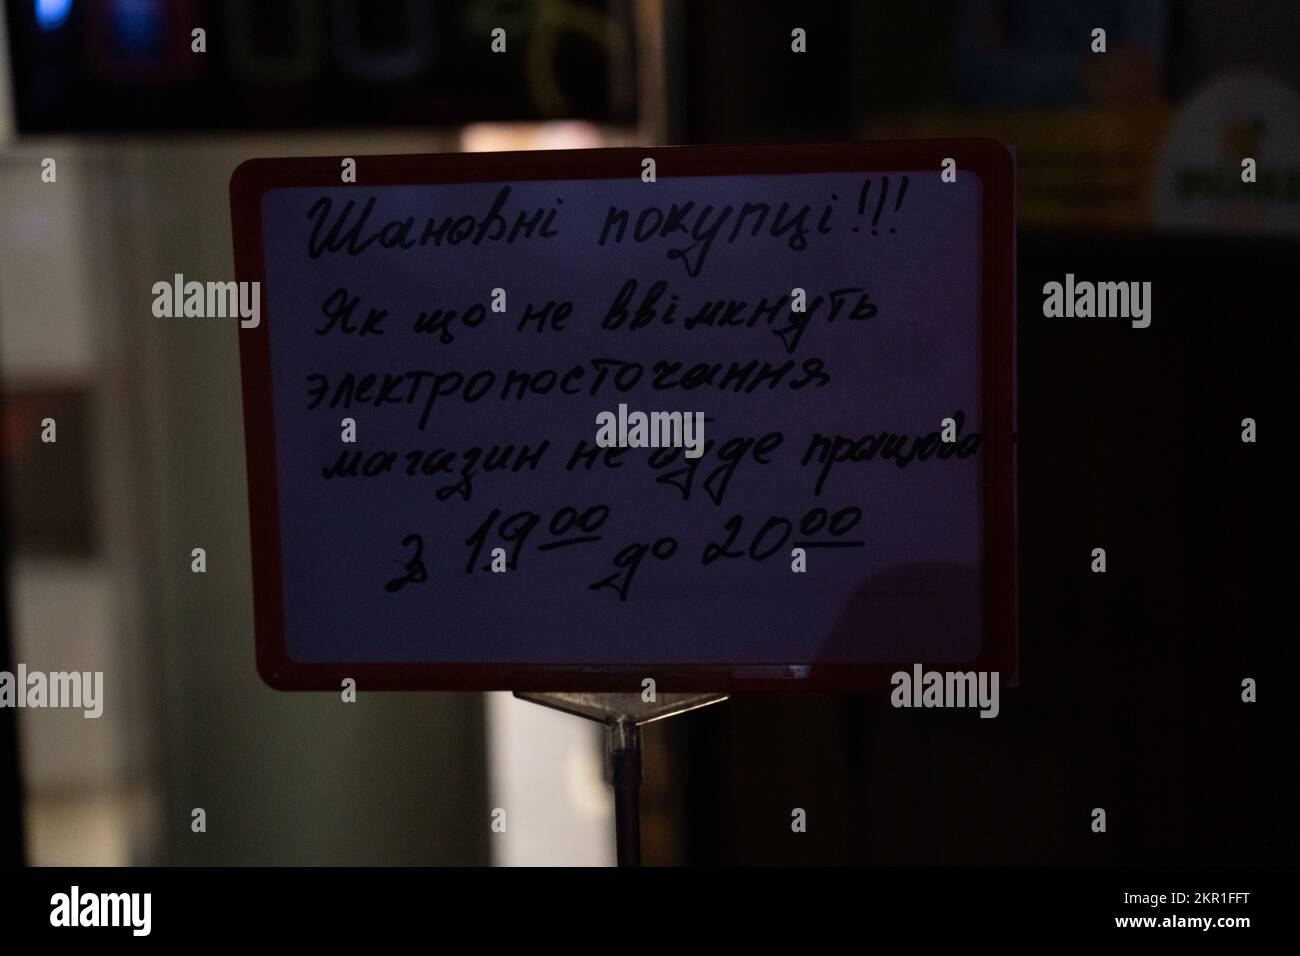 Шановні покупці!!!
Як що не ввімкнуть
электропосточання
магазин не буде працюва
з 19⁰⁰ до 20⁰⁰
alamy
Image ID: 2KR1FFT
www.alamy.com